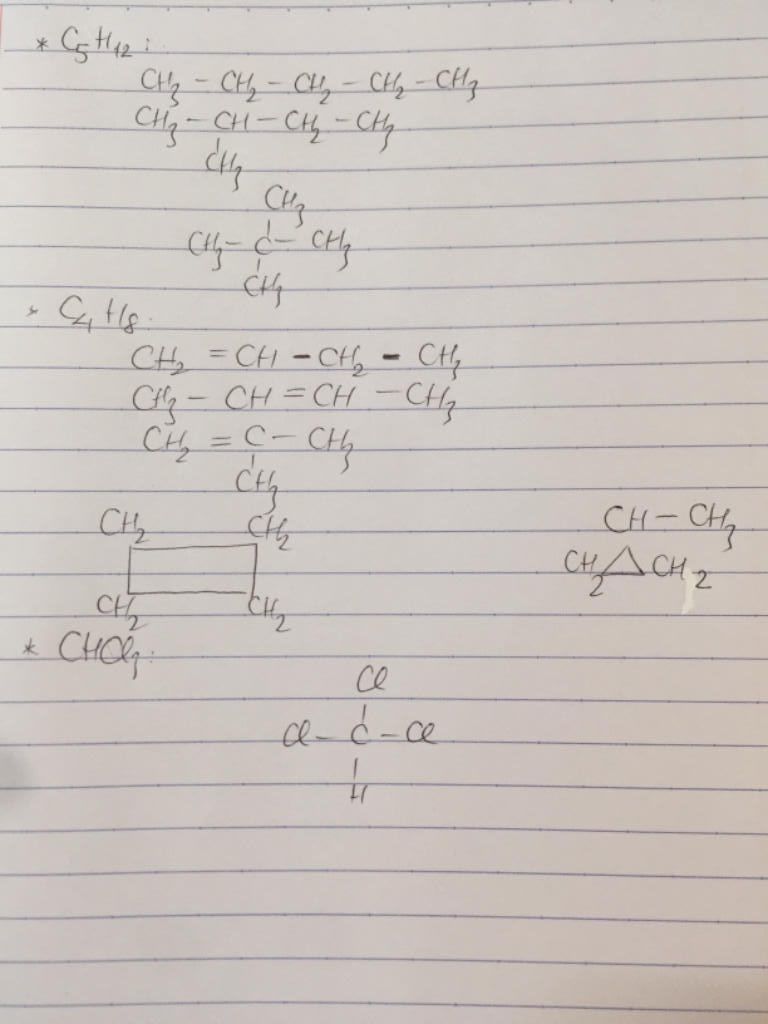 * C5H12:
CH3 - CH2 - CH2 - CH2 - CH3
CH3 - CH - CH2 - CH3
CH3
CH3
CH3 - C - CH3
CH3
* C4H8:
CH2 = CH - CH2 - CH3
CH3 - CH = CH - CH3
CH2 = C - CH3
CH3
CH2 CH2
CH2 CH2
CH - CH3
CH2 CH2
* CHCl3:
Cl
Cl - C - Cl
H